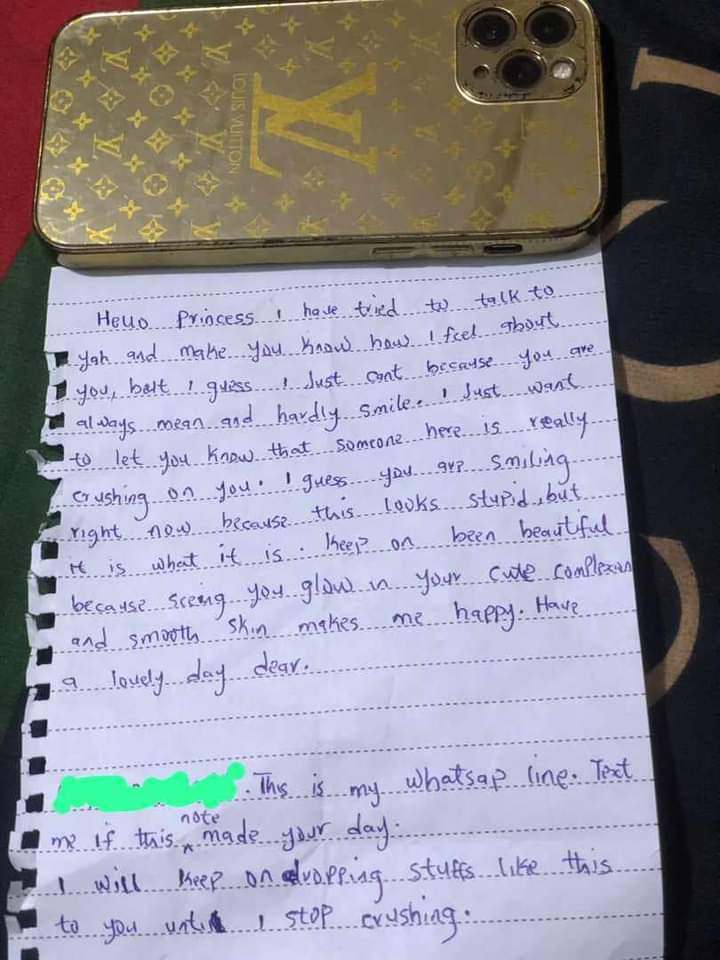 LOUIS VUITTON
Hello Princess I have tried to talk to
yah and make you know how I feel about
you, but I guess I Just cant because you are
always mean and hardly smile. I Just want
to let you know that someone here is really
crushing on you. I guess you are smiling
right now because this looks stupid, but
it is what it is. Keep on been beautiful
because seeing you glow in your cute complexion
and smooth skin makes me happy. Have
a lovely day dear.
. This is my whatsap line. Text
me if this note made your day.
I will keep on dropping stuffs like this
to you until I stop crushing.